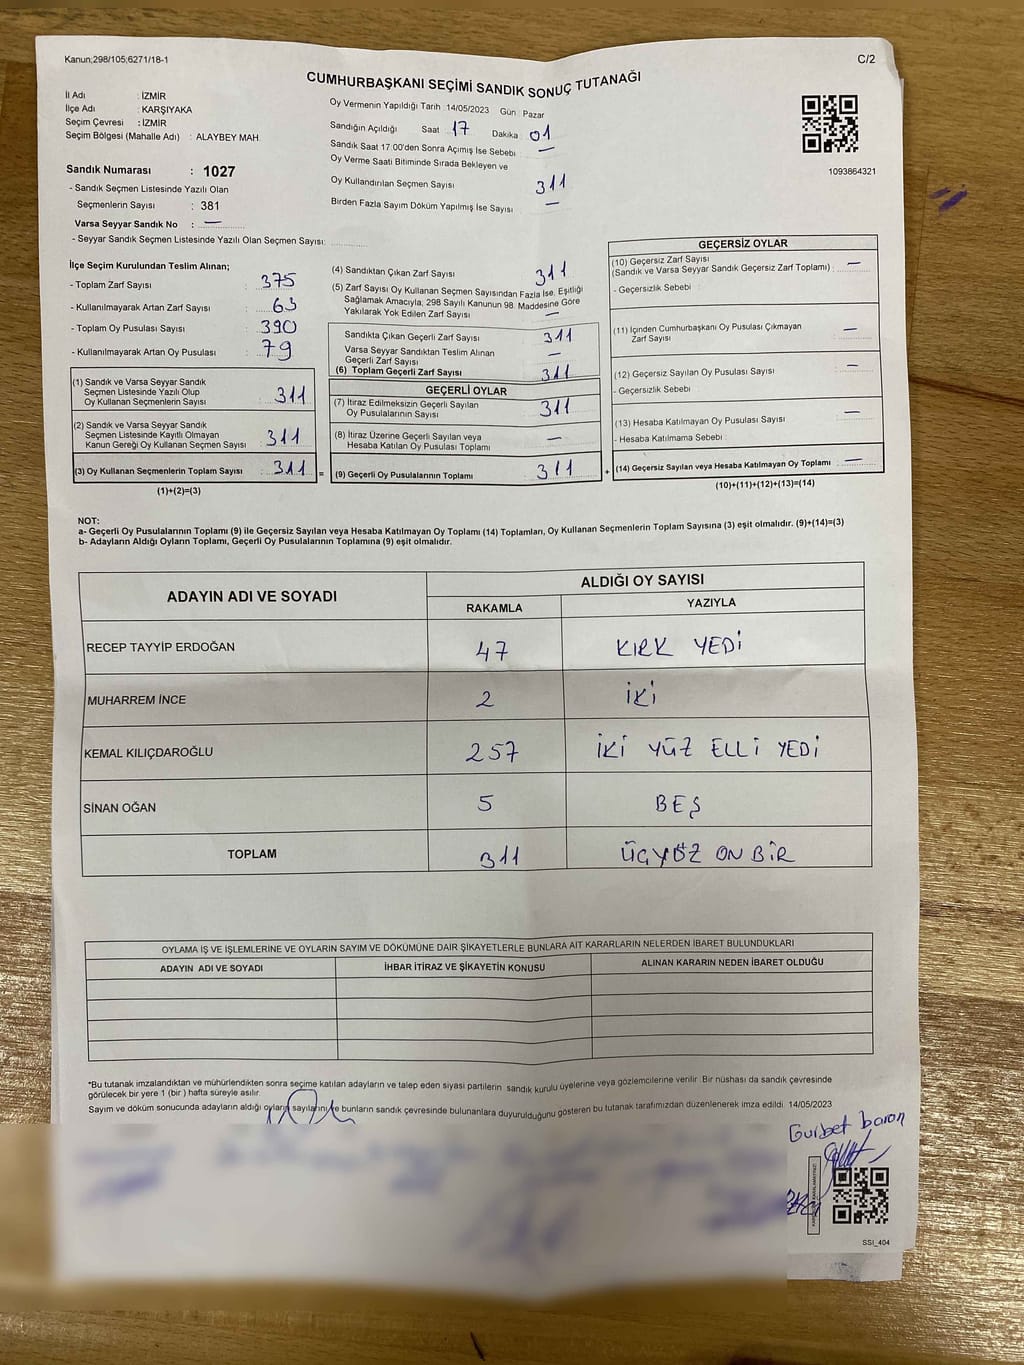 Kanun;298/105;6271/18-1
C/2
CUMHURBAŞKANI SEÇİMİ SANDIK SONUÇ TUTANAĞI
İl Adı : İZMİR
İlçe Adı : KARŞIYAKA
Seçim Çevresi : İZMİR
Seçim Bölgesi (Mahalle Adı) : ALAYBEY MAH.
Oy Vermenin Yapıldığı Tarih : 14/05/2023 Gün : Pazar
Sandığın Açıldığı Saat 17 Dakika 01
Sandık Saat 17:00'den Sonra Açımış İse Sebebi : —
Oy Verme Saati Bitiminde Sırada Bekleyen ve
Oy Kullandırılan Seçmen Sayısı 311
Birden Fazla Sayım Döküm Yapılmış İse Sayısı —
1093864321
Sandık Numarası : 1027
- Sandık Seçmen Listesinde Yazılı Olan
Seçmenlerin Sayısı : 381
Varsa Seyyar Sandık No : —
- Seyyar Sandık Seçmen Listesinde Yazılı Olan Seçmen Sayısı:
İlçe Seçim Kurulundan Teslim Alınan;
- Toplam Zarf Sayısı : 375
- Kullanılmayarak Artan Zarf Sayısı : 63
- Toplam Oy Pusulası Sayısı : 390
- Kullanılmayarak Artan Oy Pusulası : 79
(1) Sandık ve Varsa Seyyar Sandık
Seçmen Listesinde Yazılı Olup
Oy Kullanan Seçmenlerin Sayısı : 311
(2) Sandık ve Varsa Seyyar Sandık
Seçmen Listesinde Kayıtlı Olmayan
Kanun Gereği Oy Kullanan Seçmen Sayısı 311
(3) Oy Kullanan Seçmenlerin Toplam Sayısı : 311 =
(1)+(2)=(3)
(4) Sandıktan Çıkan Zarf Sayısı 311
(5) Zarf Sayısı Oy Kullanan Seçmen Sayısından Fazla İse, Eşitliği
Sağlamak Amacıyla, 298 Sayılı Kanunun 98. Maddesine Göre
Yakılarak Yok Edilen Zarf Sayısı —
Sandıkta Çıkan Geçerli Zarf Sayısı 311
Varsa Seyyar Sandıktan Teslim Alınan
Geçerli Zarf Sayısı —
(6) Toplam Geçerli Zarf Sayısı 311
GEÇERLİ OYLAR
(7) İtiraz Edilmeksizin Geçerli Sayılan
Oy Pusulalarının Sayısı 311
(8) İtiraz Üzerine Geçerli Sayılan veya
Hesaba Katılan Oy Pusulası Toplamı —
(9) Geçerli Oy Pusulalarının Toplamı 311 +
GEÇERSİZ OYLAR
(10) Geçersiz Zarf Sayısı
(Sandık ve Varsa Seyyar Sandık Geçersiz Zarf Toplamı) : —
- Geçersizlik Sebebi :
(11) İçinden Cumhurbaşkanı Oy Pusulası Çıkmayan
Zarf Sayısı —
(12) Geçersiz Sayılan Oy Pusulası Sayısı —
- Geçersizlik Sebebi
(13) Hesaba Katılmayan Oy Pusulası Sayısı —
- Hesaba Katılmama Sebebi
(14) Geçersiz Sayılan veya Hesaba Katılmayan Oy Toplamı —
(10)+(11)+(12)+(13)=(14)
NOT:
a- Geçerli Oy Pusulalarının Toplamı (9) ile Geçersiz Sayılan veya Hesaba Katılmayan Oy Toplamı (14) Toplamları, Oy Kullanan Seçmenlerin Toplam Sayısına (3) eşit olmalıdır. (9)+(14)=(3)
b- Adayların Aldığı Oyların Toplamı, Geçerli Oy Pusulalarının Toplamına (9) eşit olmalıdır.
ADAYIN ADI VE SOYADI ALDIĞI OY SAYISI
RAKAMLA YAZIYLA
RECEP TAYYİP ERDOĞAN 47 KIRK YEDİ
MUHARREM İNCE 2 İKİ
KEMAL KILIÇDAROĞLU 257 İKİ YÜZ ELLİ YEDİ
SİNAN OĞAN 5 BEŞ
TOPLAM 311 ÜÇYÖZ ON BİR
OYLAMA İŞ VE İŞLEMLERİNE VE OYLARIN SAYIM VE DÖKÜMÜNE DAİR ŞİKAYETLERLE BUNLARA AİT KARARLARIN NELERDEN İBARET BULUNDUKLARI
ADAYIN ADI VE SOYADI İHBAR İTİRAZ VE ŞİKAYETİN KONUSU ALINAN KARARIN NEDEN İBARET OLDUĞU
*Bu tutanak imzalandıktan ve mühürlendikten sonra seçime katılan adayların ve talep eden siyasi partilerin sandık kurulu üyelerine veya gözlemcilerine verilir. Bir nüshası da sandık çevresinde
görülecek bir yere 1 (bir) hafta süreyle asılır.
Sayım ve döküm sonucunda adayların aldığı oyların sayılarını ve bunların sandık çevresinde bulunanlara duyurulduğunu gösteren bu tutanak tarafımızdan düzenlenerek imza edildi. 14/05/2023
Gurbet baran
SSI_404